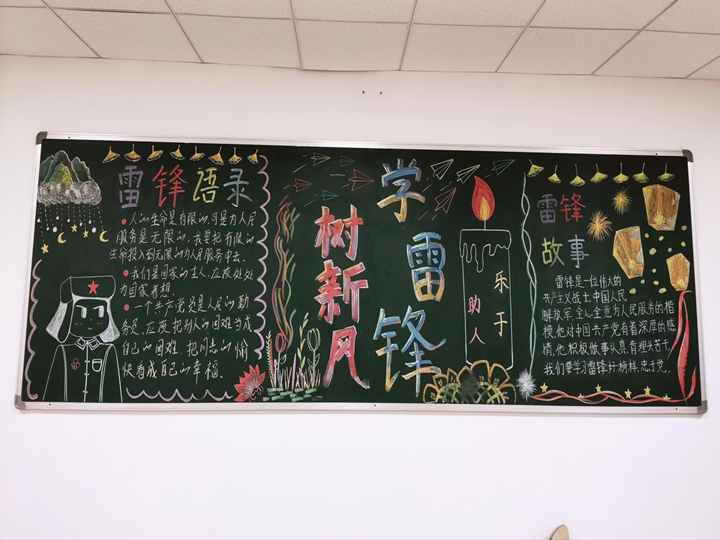 雷锋语录
人的生命是有限的,可是为人民
服务是无限的,我要把有限的
生命投入到无限的为人民服务中去.
我们是国家的主人,应该处处
为国家着想.
一个共产党员是人民的勤
务员,应该把别人的困难当成
自己的困难,把同志的愉
快看成自己的幸福.
学雷锋
树新风
乐于
助人
雷锋
故事
雷锋是一位伟大的
共产主义战士,中国人民
解放军,全心全意为人民服务的楷
模,他对中国共产党有着深厚的感
情,他积极做事认真,肯埋头苦干,
我们要学习雷锋好榜样,忠于党..